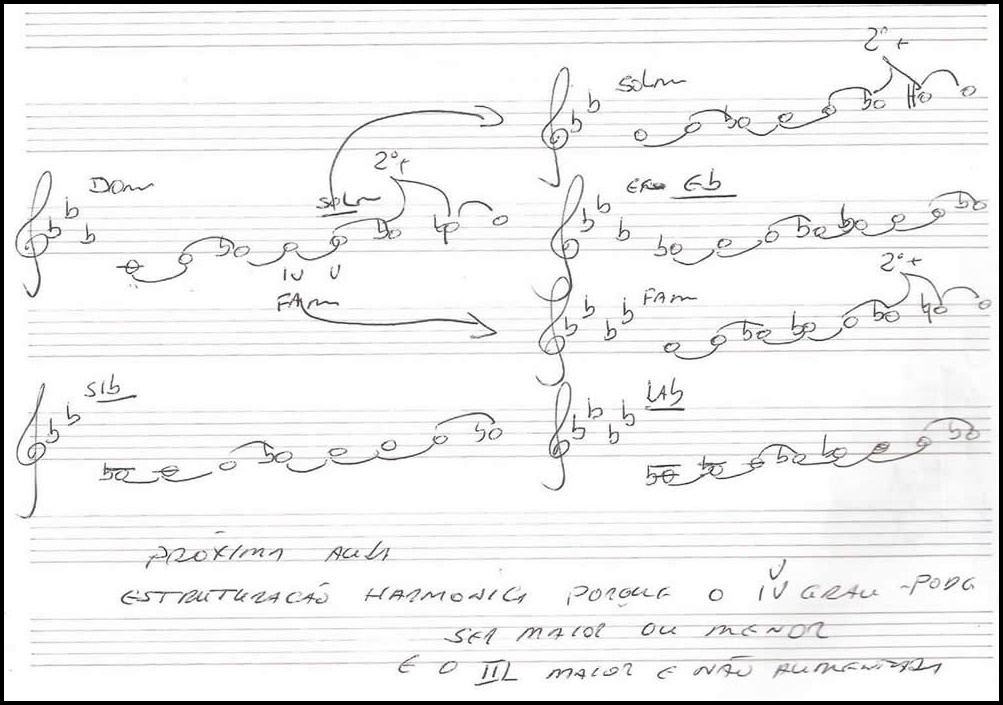 2ª+
SOLm
DOm
2ª+
SOLm
Eb
IV V
FAm
2ª+
FAm
SIb
LAb
PRÓXIMA AULA
ESTRUTURAÇÃO HARMONICA PORQUE O IV GRAU - PODE
V
SER MAIOR OU MENOR
E O III MAIOR E NÃO AUMENTADA